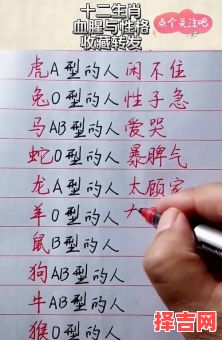 十二生肖
血腥与性格
收藏转发
点个关注吧
虎A型的人 闲不住
兔O型的人 性子急
马AB型的人 爱哭
蛇O型的人 暴脾气
龙A型的人 太顾家
羊O型的人
鼠B型的人
狗AB型的人
牛AB型的人
猴O型的人
择吉网